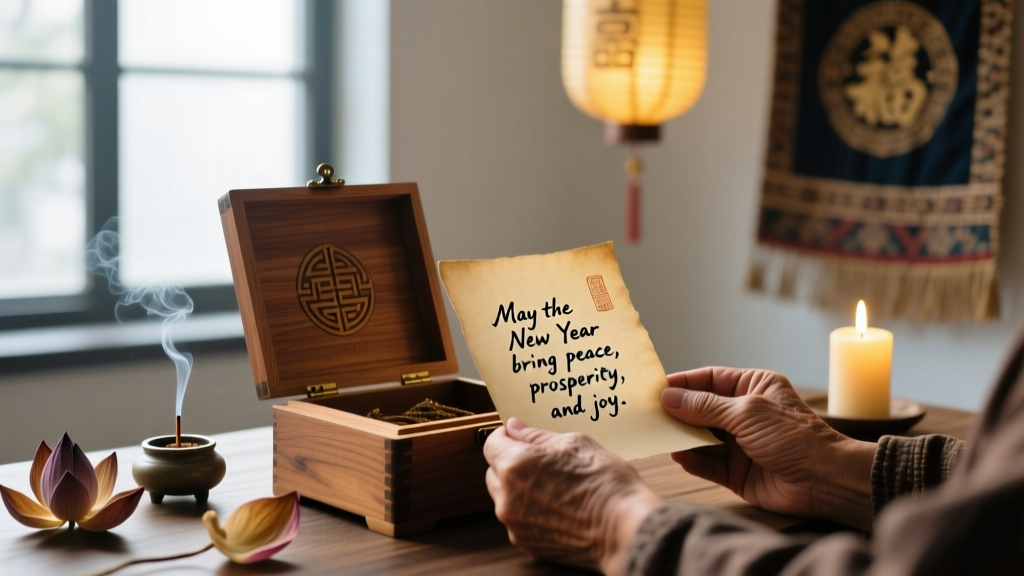 May the
New Year
bring peace,
prosperity,
and joy.
福